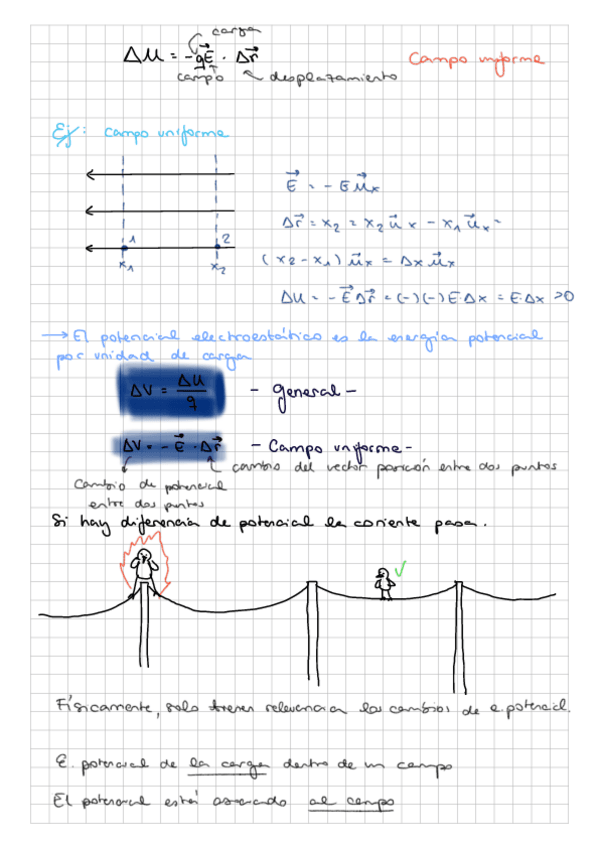 carga
ΔU = -qE⃗ · Δr⃗
Campo uniforme
campo
desplazamiento
Ej: campo uniforme
E⃗ = - E u⃗x
1
2
x1
x2
Δr⃗ = x2 = x2 u⃗x - x1 u⃗x =
(x2-x1) u⃗x = Δx u⃗x
ΔU = - E⃗ Δr⃗ = (-)(-) E·Δx = E·Δx >0
→ El potencial electroestático es la energía potencial
por unidad de carga
ΔV = ΔU/q - general -
ΔV = - E⃗ · Δr⃗ - Campo uniforme -
cambio del vector posición entre dos puntos
Cambio de potencial
entre dos puntos
Si hay diferencia de potencial la corriente pasa.
Físicamente, solo tienen relevancia los cambios de e. potencial.
E. potencial de la carga dentro de un campo
El potencial está asociado al campo